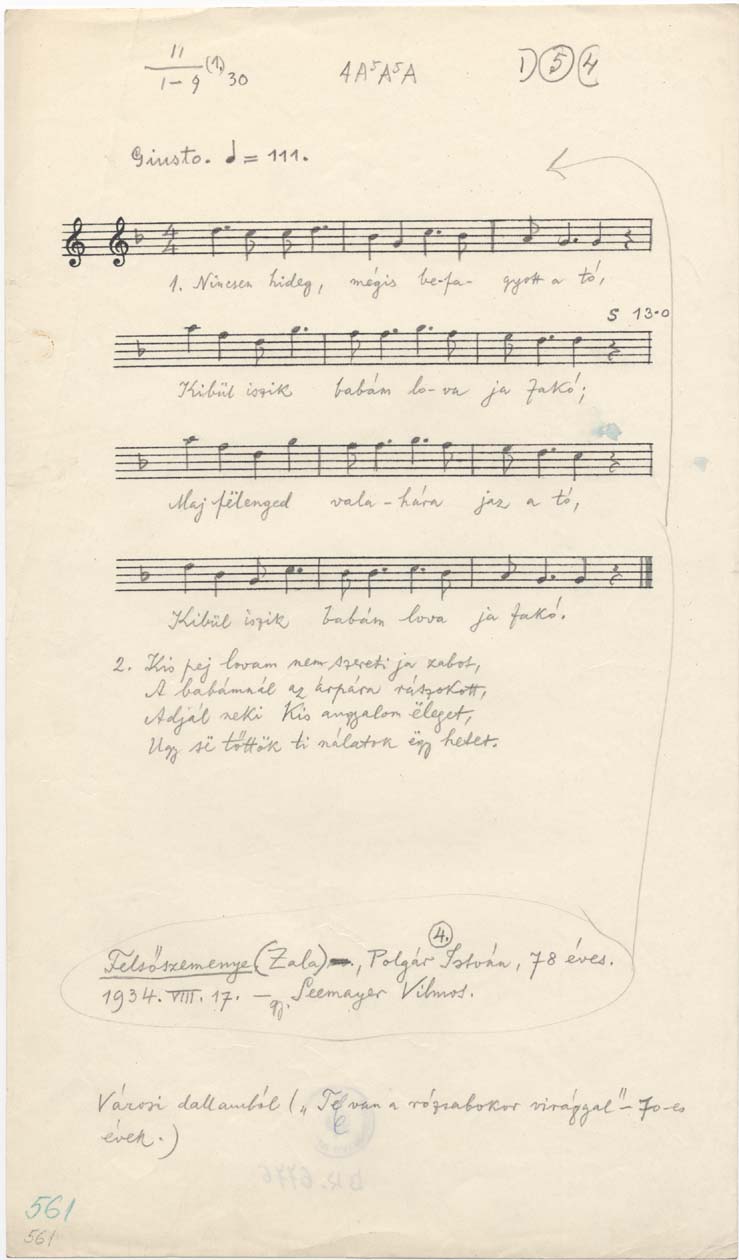 11
1-9 (1.) 30 4A⁵A⁵A 1) 5 4
Giusto. ♩ = 111.
1. Nincsen hideg, mégis be-fa- gyott a tó,
S 13-0
Kibül iszik babám lo-va ja fakó;
Maj fëlenged vala-hára jaz a tó,
Kibül iszik babám lova ja fakó.
2. Kis pej lovam nem szereti ja zabot,
A babámnál az árpára rászokott,
Adjál neki kis angyalom ëleget,
Ugy së töttök ti nálatok ëgy hetet.
4.
Felsőszemenye (Zala), Polgár István, 78 éves.
1934. VIII. 17. – gy. Seemayer Vilmos.
Városi dallamból („Tel van a rózsabokor virággal" – 70-es
évek.)
561
561